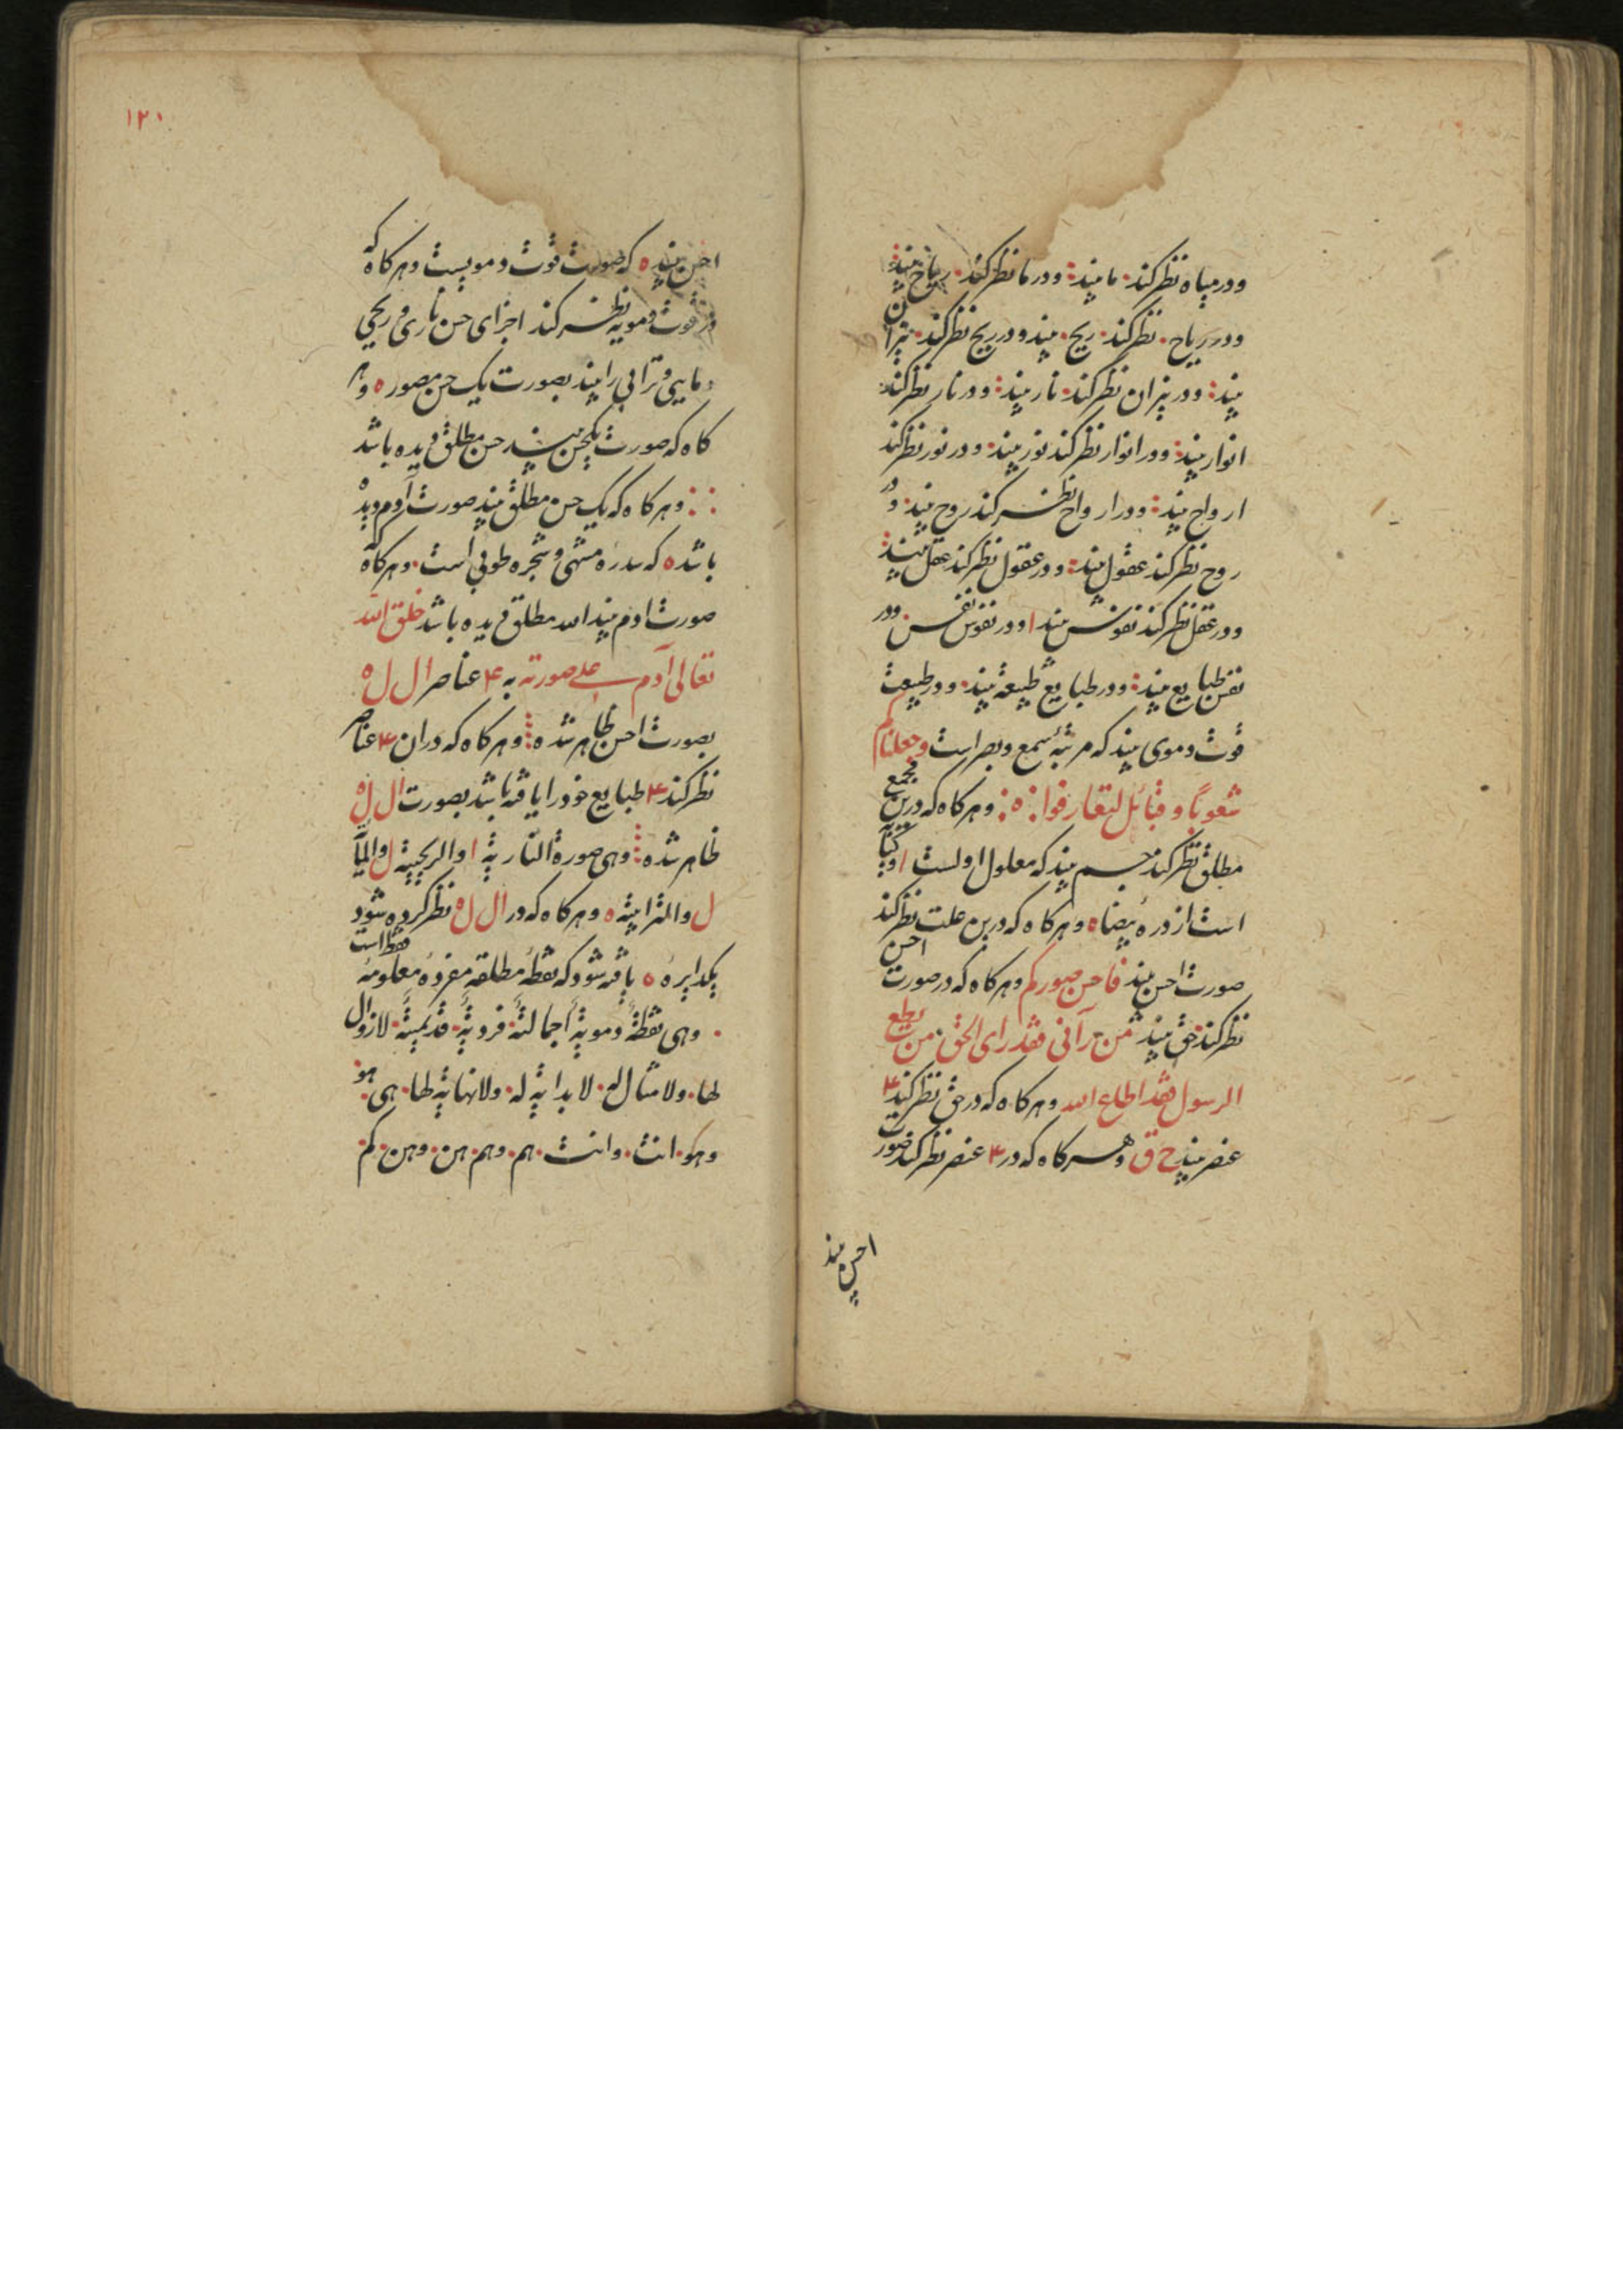 ودر میاه نظر کند· ما بیند؛ ودر ما نظر کند· ریاح بیند؛
ودر ریاح· نظر کند· ریح· بیند ودر ریح نظر کند· نیران
بیند؛ ودر نیران نظر کند· نار بیند؛ ودر نار نظر کند
انوار بیند؛ ودر انوار نظر کند نور بیند· ودر نور نظر کند
ارواح بیند؛ ودر ارواح نظر کند روح بیند· ودر
روح نظر کند عقول بیند؛ ودر عقول نظر کند عقل بیند
ودر عقل نظر کند نفوس بیند ا ودر نفوس نفس ودر
نفس طبایع بیند؛ ودر طبایع طبیعة بیند· ودر طبیعت
قوت دموی بیند که مرتبهٔ سمع وبصر است وجعلناکم
شعوبًا وقبائل لتعارفوا ؛ ه ؛ وهرکاه که درین مجمع
مطلق نظر کند جسم بیند که معلول اولست ا وبه کتابیه
است از دره بیضا ه وهرکاه که درین علت نظر کند
صورت احسن بیند فاحسن صورکم وهرکاه که در صورت احسن
نظر کند حق بیند من رآنی فقد رای الحق· من یطع
الرسول فقد اطاع الله وهرکاه که در حق نظر کند ۴
عنصر بیند ح ق وهرکاه که در ۴ عنصر نظر کند صورت
احسن بیند
۱۲۰
احسن بیند ه که صورت قوت دمویست وهرکاه که
در قوت دمویه نظر کند اجزای حسن ناری وریحی
ومایی وترابی را بیند بصورت یک حسن مصور ه وهر
کاه که صورت یکحسن بیند حسن مطلق دیده باشد
؛ وهرکاه که یک حسن مطلق بیند صورت آدم دیده
باشد ه که سدره منتهی وشجره طوبی است· وهرکاه که
صورت ادم بیند الله مطلق دیده باشد خلق الله
تعالی آدم علی صورته به ۴ عناصر ال ل ه
بصورت احسن ظاهر شده ؛ وهرکاه که دران ۴ عناصر
نظر کند ۴ طبایع خود را یافته باشد بصورت ال ل ه
ظاهر شده ؛ وهی صورة الناریة ا والریحیة ل والمآئیة
ل والترابیة ه وهرکاه که در ال ل ه نظر کرده شود
یکدایره ه یافته شود که نقطهٔ مطلقه مفرده معلومه فقط است
· وهی نقطةً دمویةً اجمالیةً· فردیةً· قدیمیةً· لازوال
لها· ولا مثال له· لا بدایة له· ولا نهایة لها· هی· هو·
وهو· انت· وانت· هم· وهم· هن· وهن· کم·